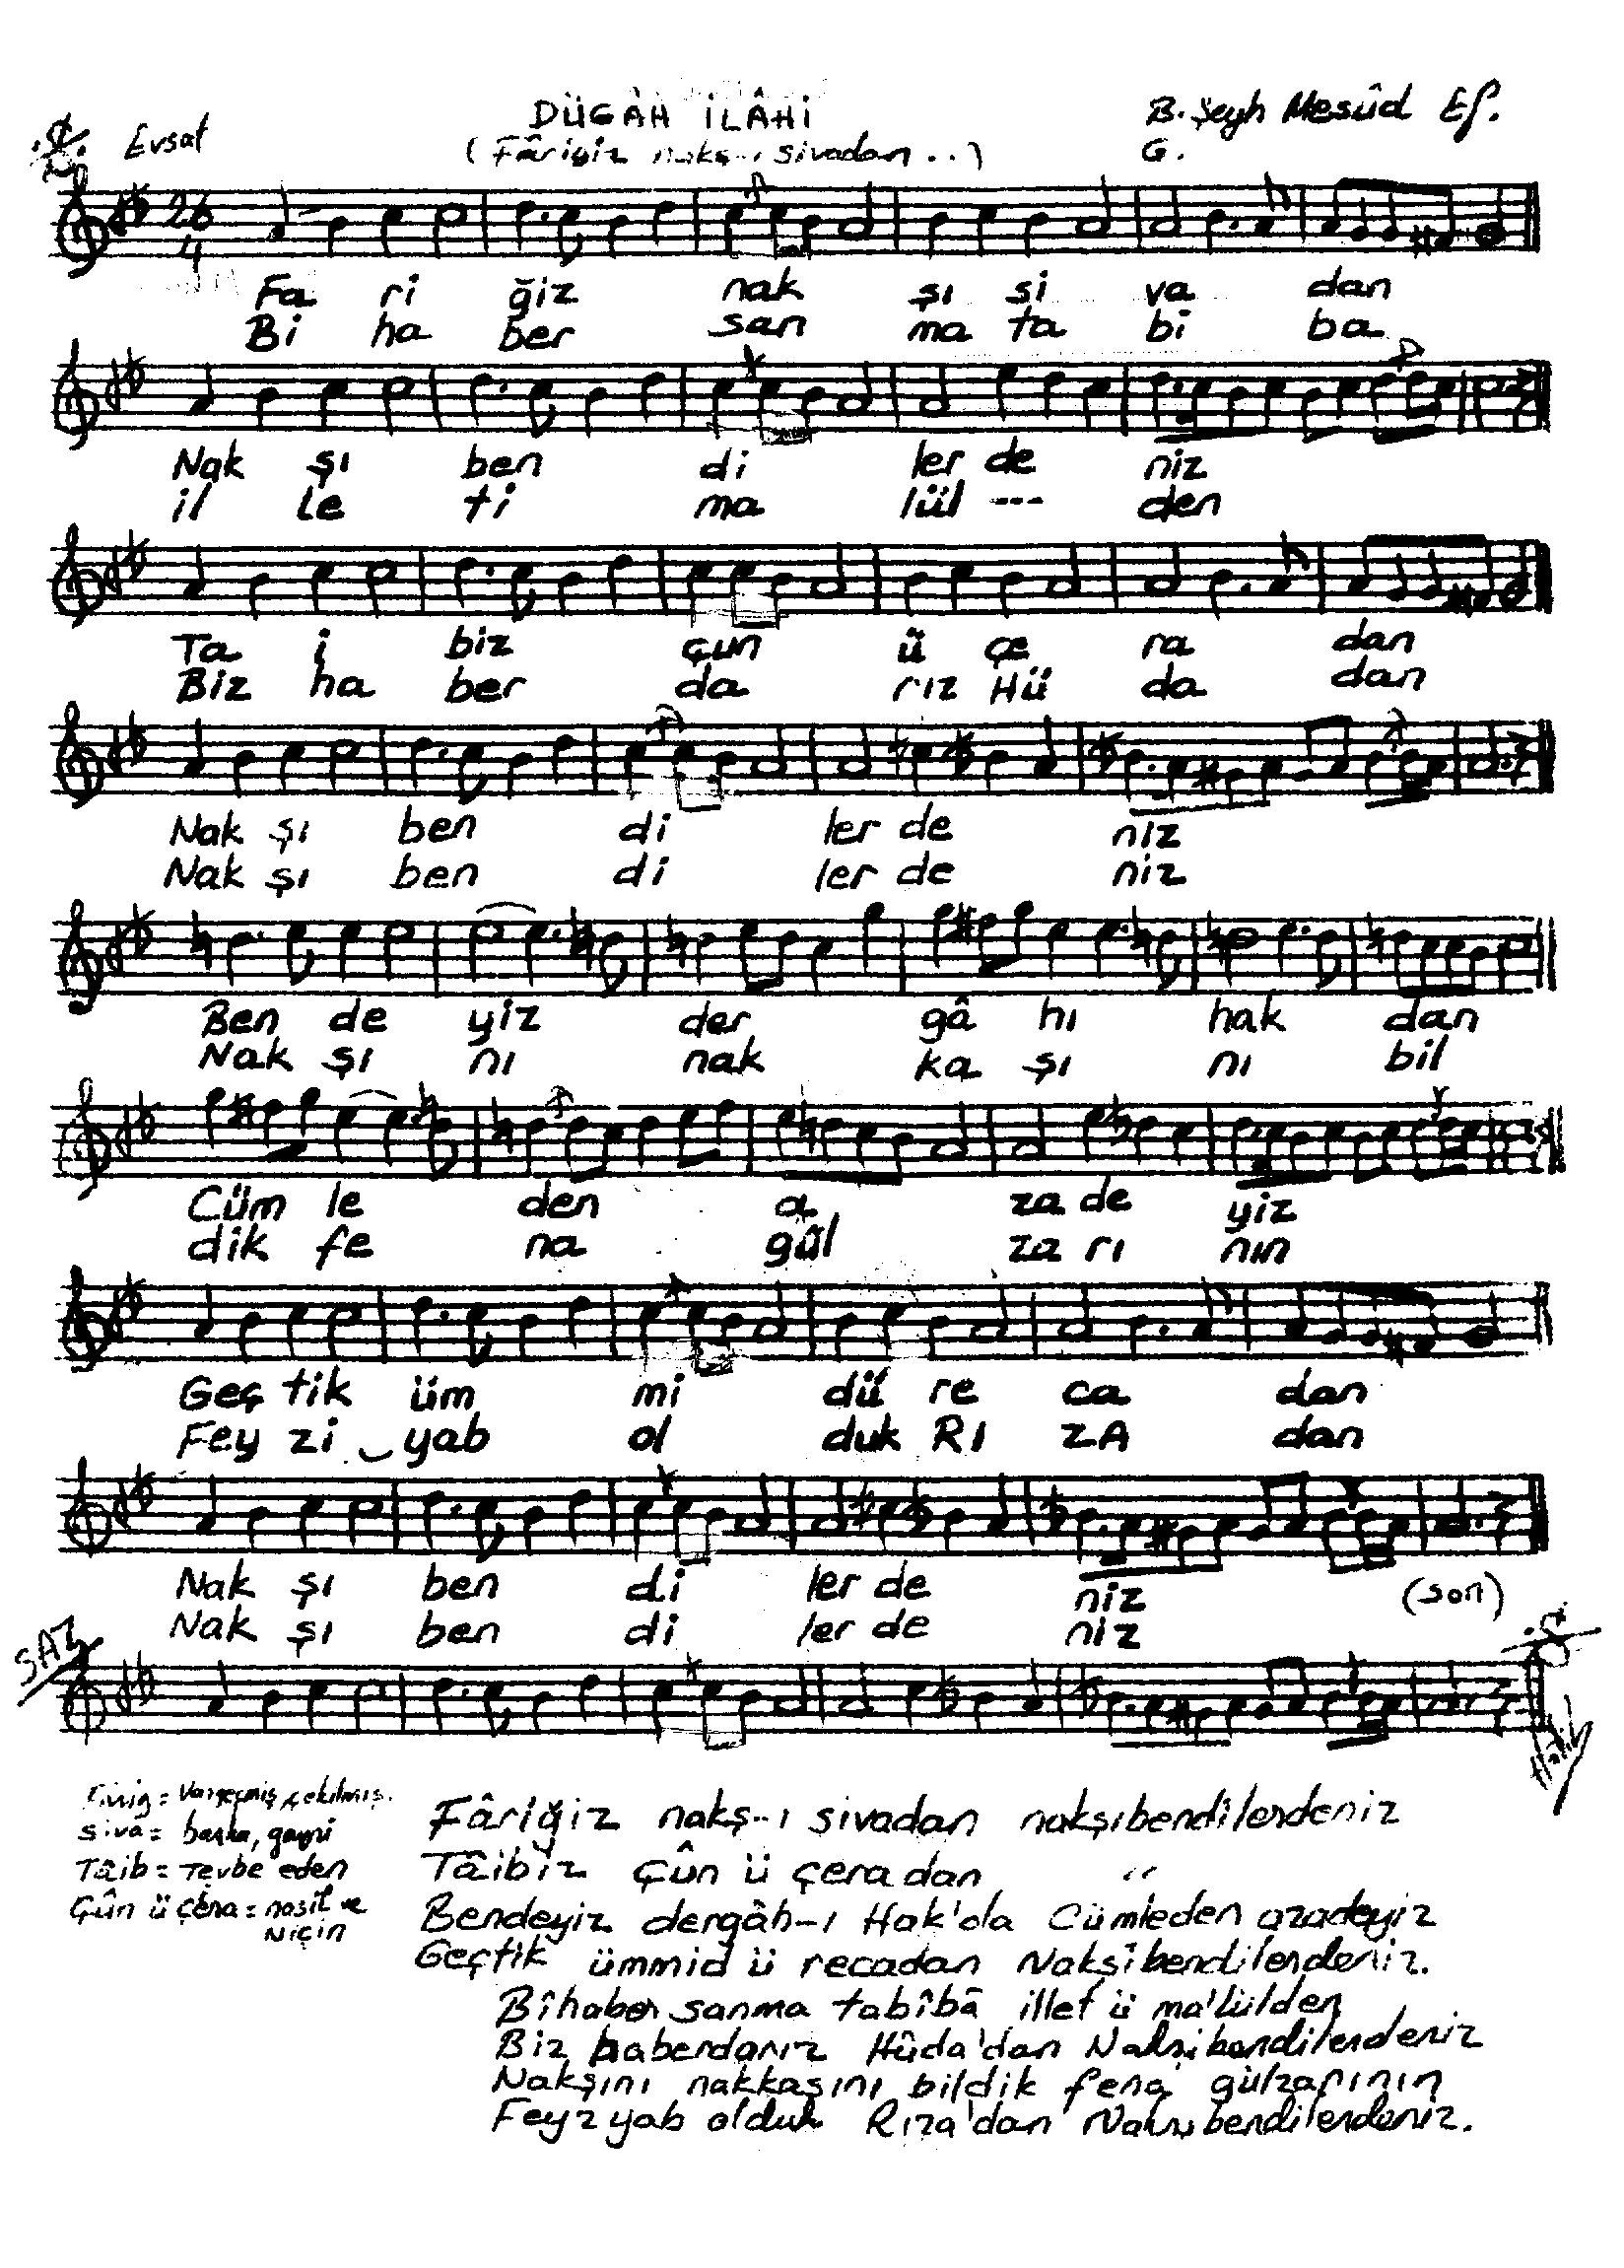 Evsat
DÜGÂH İLÂHİ
B. Şeyh Mesûd Ef.
(Fâriğiz nakş-ı sivadan..)
G.
26
4
Fa ri ğiz nak şı si va dan
Bi ha ber san ma ta bi ba
Nak şı ben di ler de niz
il le ti ma lül --- den
Ta i biz çun ü çe ra dan
Biz ha ber da rız Hü da dan
Nak şı ben di ler de niz
Nak şı ben di ler de niz
Ben de yiz der gâ hı hak dan
Nak şı nı nak ka şı nı bil
Cüm le den a za de yiz
dik fe na gül za rı nın
Geç tik üm mi dü re ca dan
Fey zi yab ol duk RI ZA dan
Nak şı ben di ler de niz (son)
Nak şı ben di ler de niz
SAZ
Fâriğ = Vazgeçmiş, çekilmiş.
sivâ = başka, gayri
Tâib = Tevbe eden
Çûn ü çêra = nasıl ve
niçin
Fâriğiz nakş-ı sivadan nakşıbendîlerdeniz
Tâibiz çûn ü çeradan "
Bendeyiz dergâh-ı Hak'ola Cümleden azadeyiz
Geçtik ümmid ü recadan Nakşîbendilerdeniz.
Bîhaber sanma tabîbâ illet ü ma'lülden
Biz haberdarız Hûda'dan Nakşibendilerdeniz
Nakşını nakkaşını bildik fena gülzarının
Feyzyab olduk Rıza'dan Nakşıbendilerdeniz.